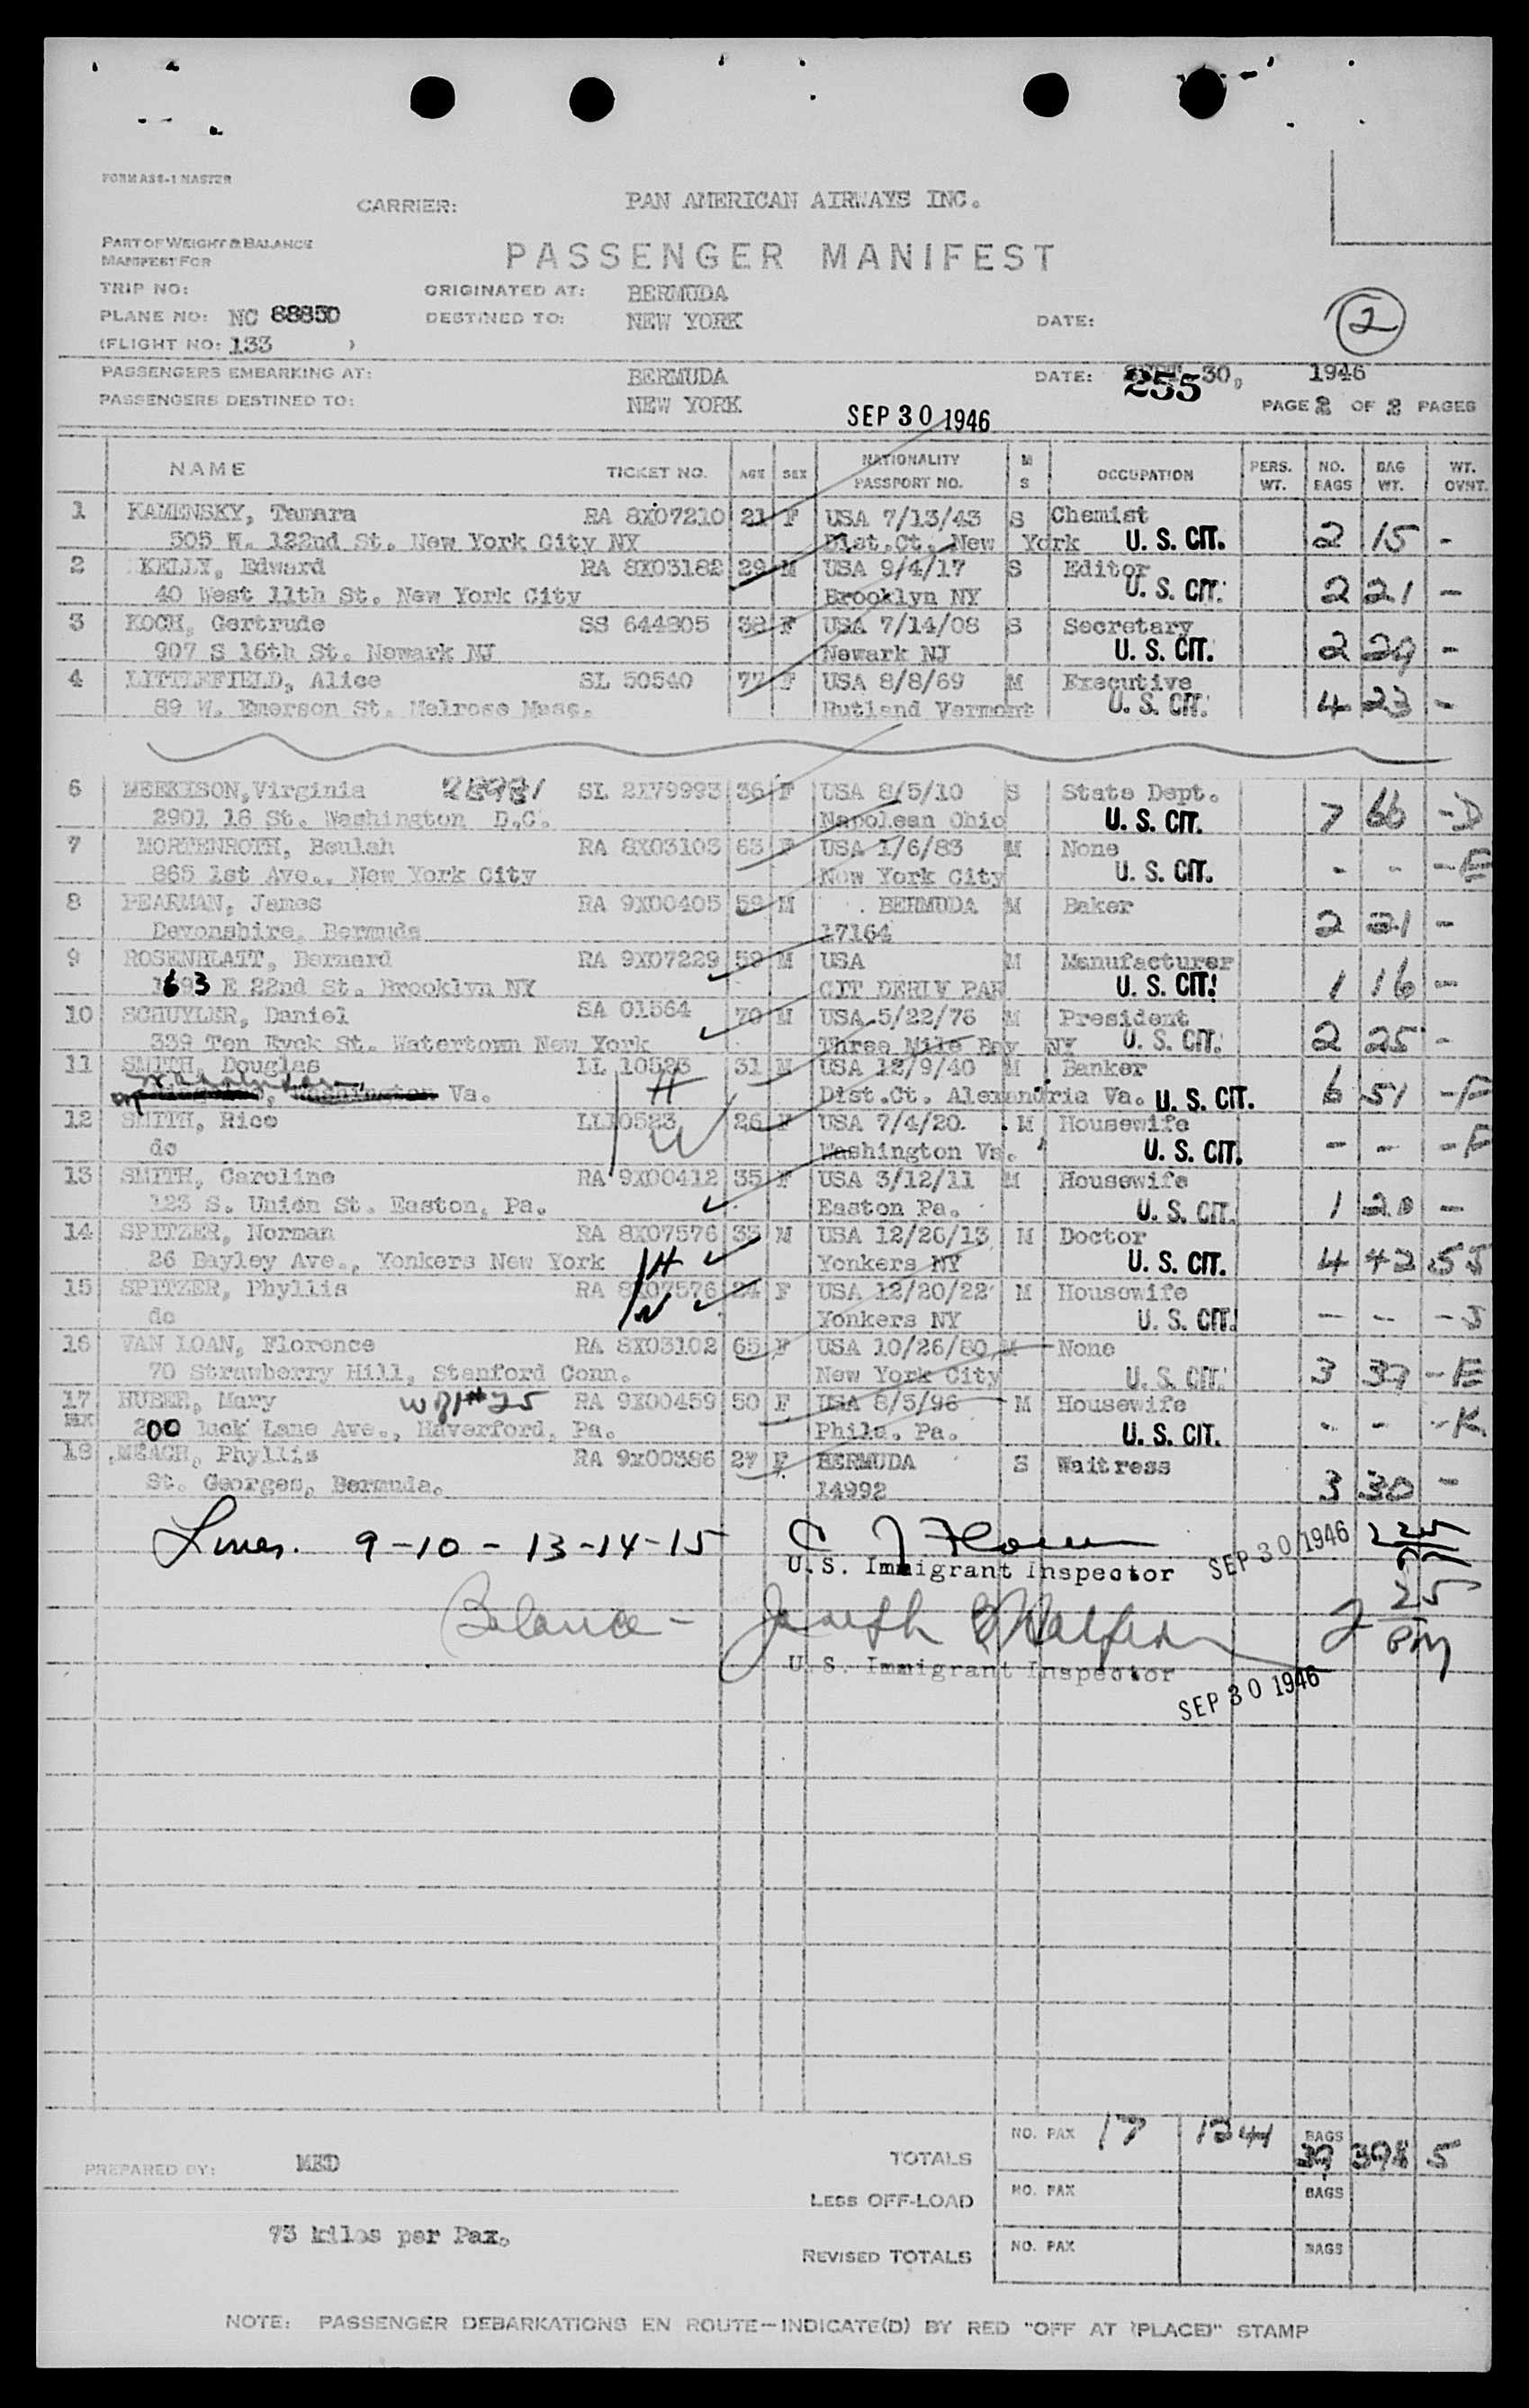 FORM AS6-1 MASTER
CARRIER: PAN AMERICAN AIRWAYS INC.
PART OF WEIGHT & BALANCE
MANIFEST FOR
PASSENGER MANIFEST
TRIP NO: ORIGINATED AT: BERMUDA
PLANE NO: NC 88850 DESTINED TO: NEW YORK DATE: 2
(FLIGHT NO: 133 )
PASSENGERS EMBARKING AT: BERMUDA DATE: 30, 1946
255
PASSENGERS DESTINED TO: NEW YORK PAGE 2 OF 2 PAGES
SEP 30 1946
NAME TICKET NO. AGE SEX NATIONALITY PASSPORT NO. M S OCCUPATION PERS. WT. NO. BAGS BAG WT. WT. OVNT.
1 KAMENSKY, Tamara RA 8X07210 21 F USA 7/13/43 S Chemist
505 W. 122nd St. New York City NY Dist.Ct. New York U. S. CIT. 2 15 -
2 KELLY, Edward RA 8X03182 29 M USA 9/4/17 S Editor
40 West 11th St. New York City Brooklyn NY U. S. CIT. 2 21 -
3 KOCH, Gertrude SS 644805 38 F USA 7/14/08 S Secretary
907 S 16th St. Newark NJ Newark NJ U. S. CIT. 2 29 -
4 LITTLEFIELD, Alice SL 50540 77 F USA 8/8/69 M Executive
89 W. Emerson St. Melrose Mass. Rutland Vermont U. S. CIT. 4 23 -
6 MEEKISON, Virginia SL 2179993 36 F USA 8/5/10 S State Dept.
2901 18 St. Washington D.C. Napolean Ohio U. S. CIT. 7 66 -D
7 MORTENROTH, Beulah RA 8X03103 63 F USA 1/6/83 M None
865 1st Ave., New York City New York City U. S. CIT. - - -E
8 PEARMAN, James RA 9X00405 58 M BERMUDA M Baker
Devonshire, Bermuda 17164 2 21 -
9 ROSENBLATT, Bernard RA 9X07229 59 M USA M Manufacturer
1693 E 22nd St. Brooklyn NY CIT DERIV PAR U. S. CIT. 1 16 -
10 SCHUYLER, Daniel SA 01564 70 M USA 5/22/76 M President
339 Ten Eyck St. Watertown New York Three Mile Bay NY U. S. CIT. 2 25 -
11 SMITH, Douglas LL 10523 31 M USA 12/9/40 M Banker
Va. H Dist.Ct. Alexandria Va. U. S. CIT. 6 51 -F
12 SMITH, Rice LL10523 26 F USA 7/4/20. M Housewife
do W Washington Va. U. S. CIT. - - -F
13 SMITH, Caroline RA 9X00412 35 F USA 3/12/11 M Housewife
123 S. Union St. Easton, Pa. Easton Pa. U. S. CIT. 1 20 -
14 SPITZER, Norman RA 8X07576 33 M USA 12/26/13 M Doctor
26 Bayley Ave., Yonkers New York H Yonkers NY U. S. CIT. 4 42 5J
15 SPITZER, Phyllis RA 8X07576 24 F USA 12/20/22 M Housewife
do W Yonkers NY U. S. CIT. - - -J
16 VAN LOAN, Florence RA 8X03102 65 F USA 10/26/80 M None
70 Strawberry Hill, Stanford Conn. New York City U. S. CIT. 3 39 -E
17 HUBER, Mary RA 9X00459 50 F USA 8/5/96 M Housewife
200 Lane Ave., Haverford, Pa. Phila. Pa. U. S. CIT. - - -K
18 MEACH, Phyllis RA 9X00386 27 F BERMUDA S Waitress
St. Georges, Bermuda. 14992 3 30 -
Lines. 9-10-13-14-15
U.S. Immigrant Inspector SEP 30 1946
Balance - Joseph
U.S. Immigrant Inspector 2 25 PM
SEP 30 1946
TOTALS NO. PAX 17 1241 BAGS 39 398 5
PREPARED BY: MED
LESS OFF-LOAD NO. PAX BAGS
73 kilos per Pax.
REVISED TOTALS NO. PAX BAGS
NOTE: PASSENGER DEBARKATIONS EN ROUTE—INDICATE(D) BY RED "OFF AT (PLACE)" STAMP